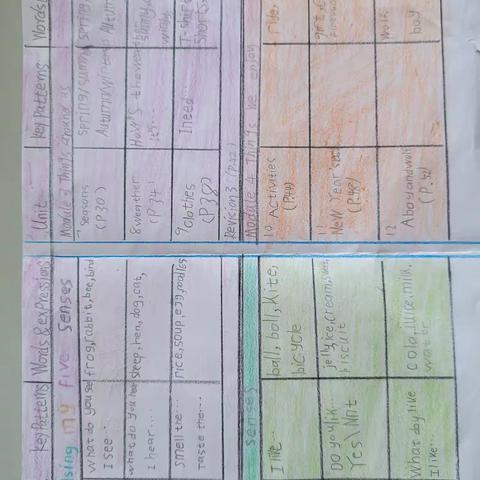 Unit
Key Patterns
Words
Module 3 Things around us
7 Seasons
(P.30)
spring
8 weather
(P.34)
How's the weather
It's...
9 clothes
(P.38)
I need...
Revision 3 (P.42)
Module 4 Things we enjoy
10 Activities
(P.44)
ride,
11
New Year's
(P.48)
12
A boy and wolf
(P.52)
boy
Key Patterns
Words & expressions
sing my five senses
What do you see
I see...
frog, rabbit, bee, bird
what do you hear
I hear...
sheep, hen, dog, cat,
smell the...
Taste the...
rice, soup, egg, noodles
senses
I like...
ball, doll, kite,
bicycle
Do you lik...
Yes
jelly, ice cream,
biscuit
What do y, like
I like...
cola, juice, milk,
water